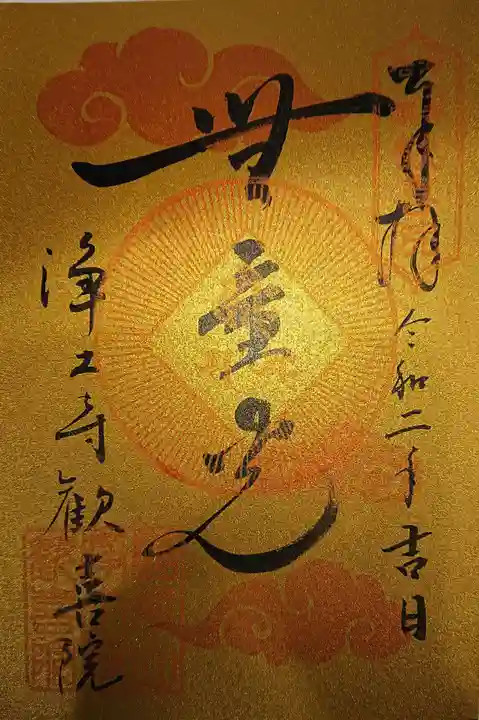 奉拝 令和二年吉日
無量光
浄土寺歓喜院